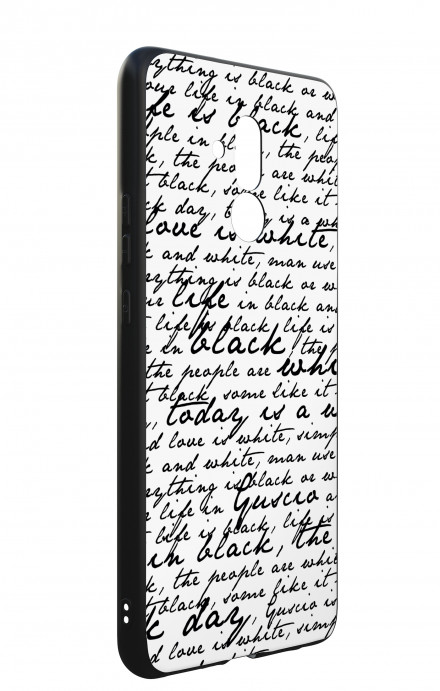 ything is black or w
our life in black and
fe is black, lif
ple in bl
k, the people are whi
t black, some like it
ck day, t is a wh
love is white,
k and white, man use
rything is black or w
ur life in black and
t life is black, life is
e in black, the p
the people are whi
t black, some like it
k, today is a w
d love is white, simp
k and white, man use
rything is black or w
r life in Guscio a
t life is black, life is
in black, the
k, the people are whi
t black, some like it
k day, Guscio is
d love is white, simp